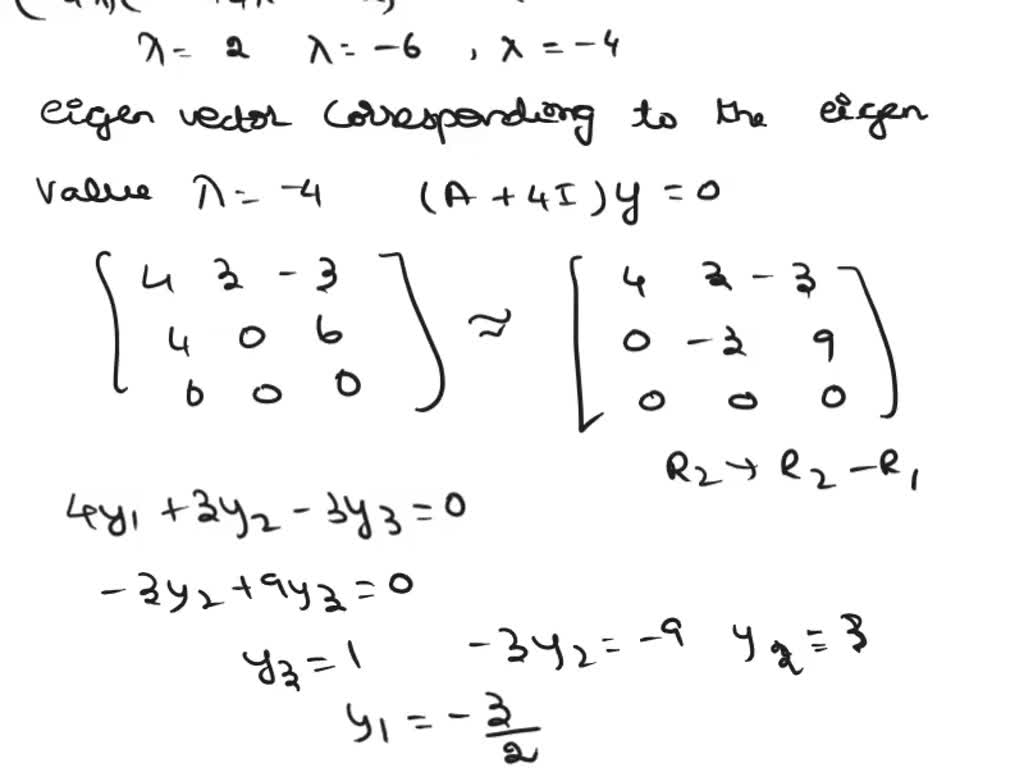 λ = 2 λ = -6 , λ = -4
eigen vector corresponding to the eigen
value λ = -4 (A + 4I)y = 0
4 3 -3 4 3 -3
4 0 6 ≈ 0 -3 9
0 0 0 0 0 0
R2 → R2 - R1
4y1 + 3y2 - 3y3 = 0
-3y2 + 9y3 = 0
y3 = 1 -3y2 = -9 y2 = 3
y1 = -3/2